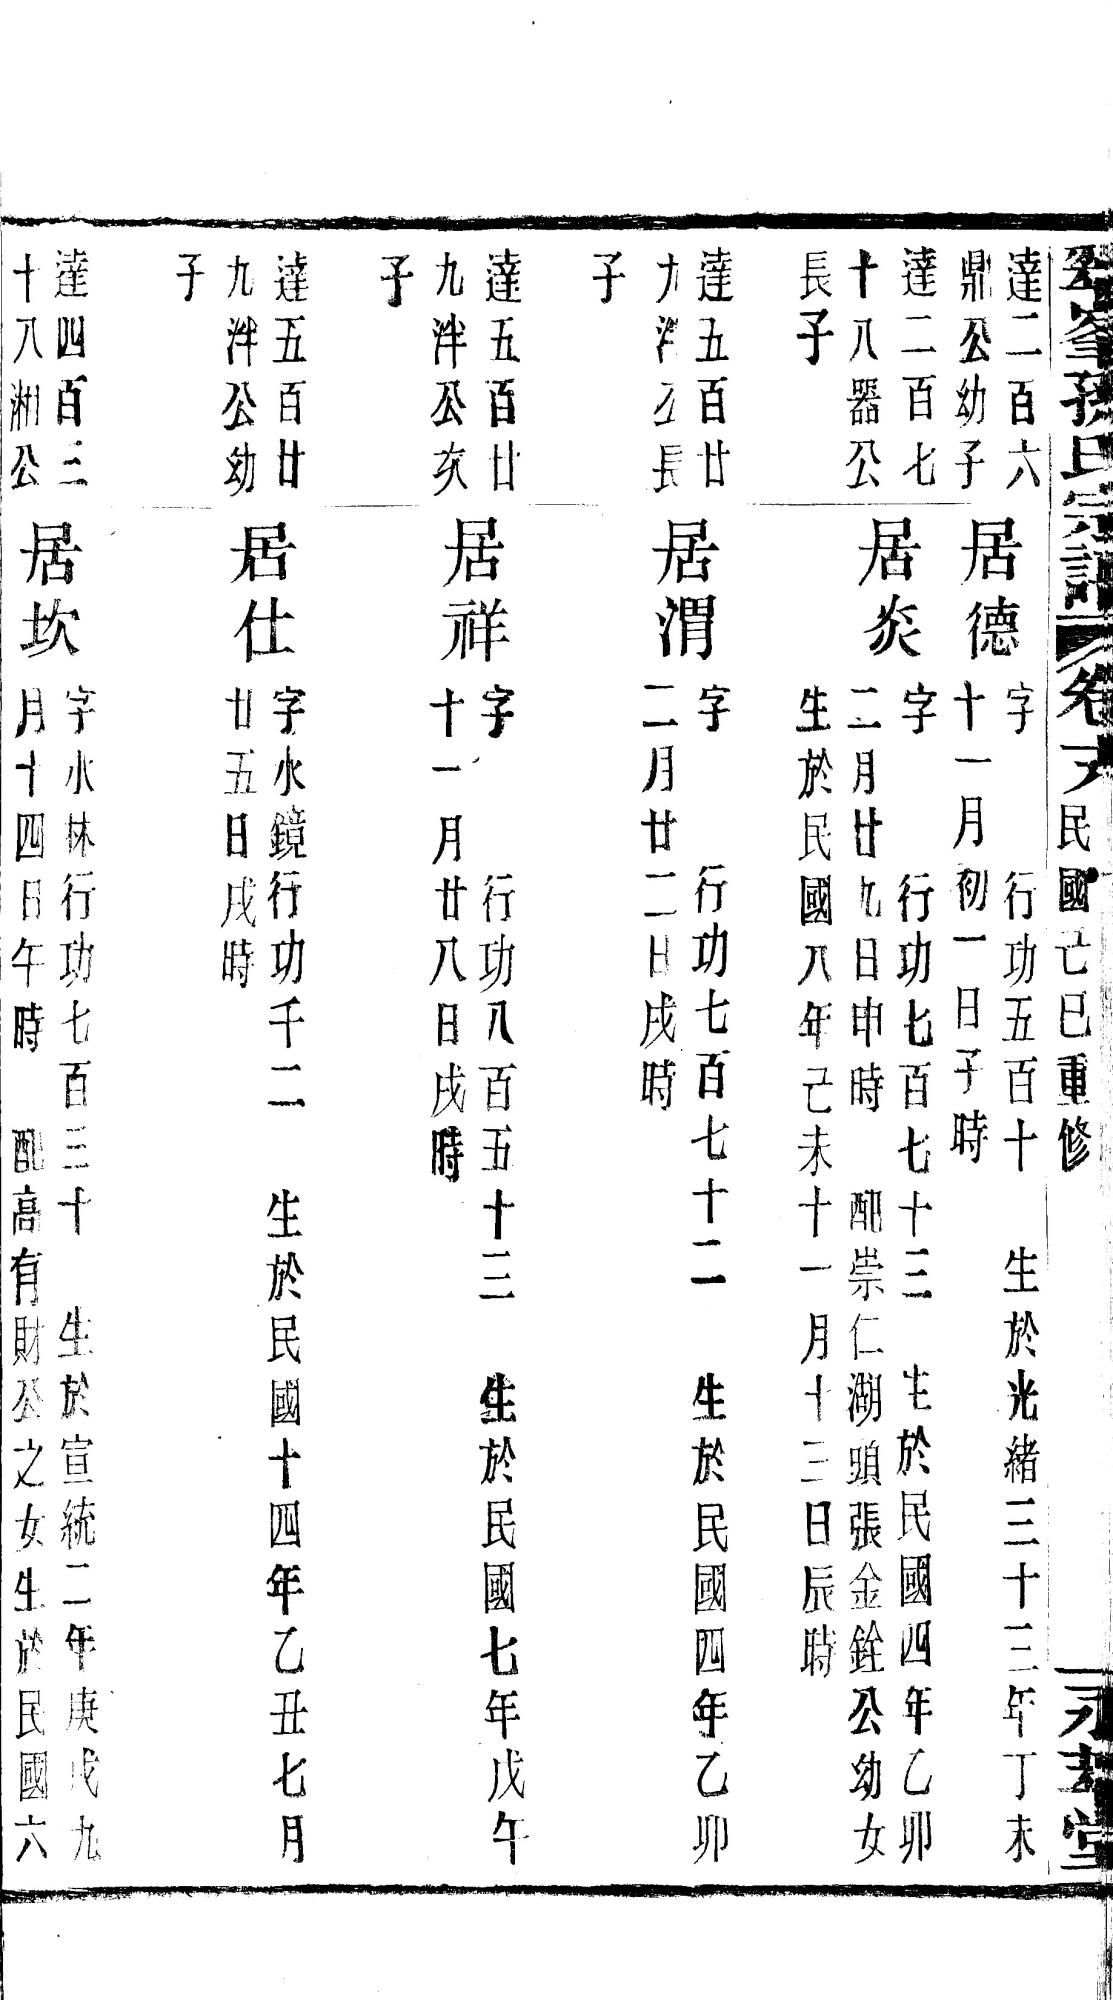 孫氏宗譜 卷 民國己巳重修 堂
達二百六
鼎公幼子
居德
字 行功五百十 生於光緒三十三年丁未
十一月初一日子時
達二百七
十八器公
長子
居炎
字 行功七百七十三 生於民國四年乙卯
二月廿九日申時 配崇仁湖頭張金銓公幼女
生於民國八年己未十一月十三日辰時
達五百廿
九泮公長
子
居渭
字 行功七百七十二 生於民國四年乙卯
二月廿二日戌時
達五百廿
九泮公次
子
居祥
字 行功八百五十三 生於民國七年戊午
十一月廿八日戌時
達五百廿
九泮公幼
子
居仕
字水鏡行功千二 生於民國十四年乙丑七月
廿五日戌時
達四百三
十八湘公
居坎
字水林行功七百三十 生於宣統二年庚戌九
月十四日午時 配高有財公之女生於民國六